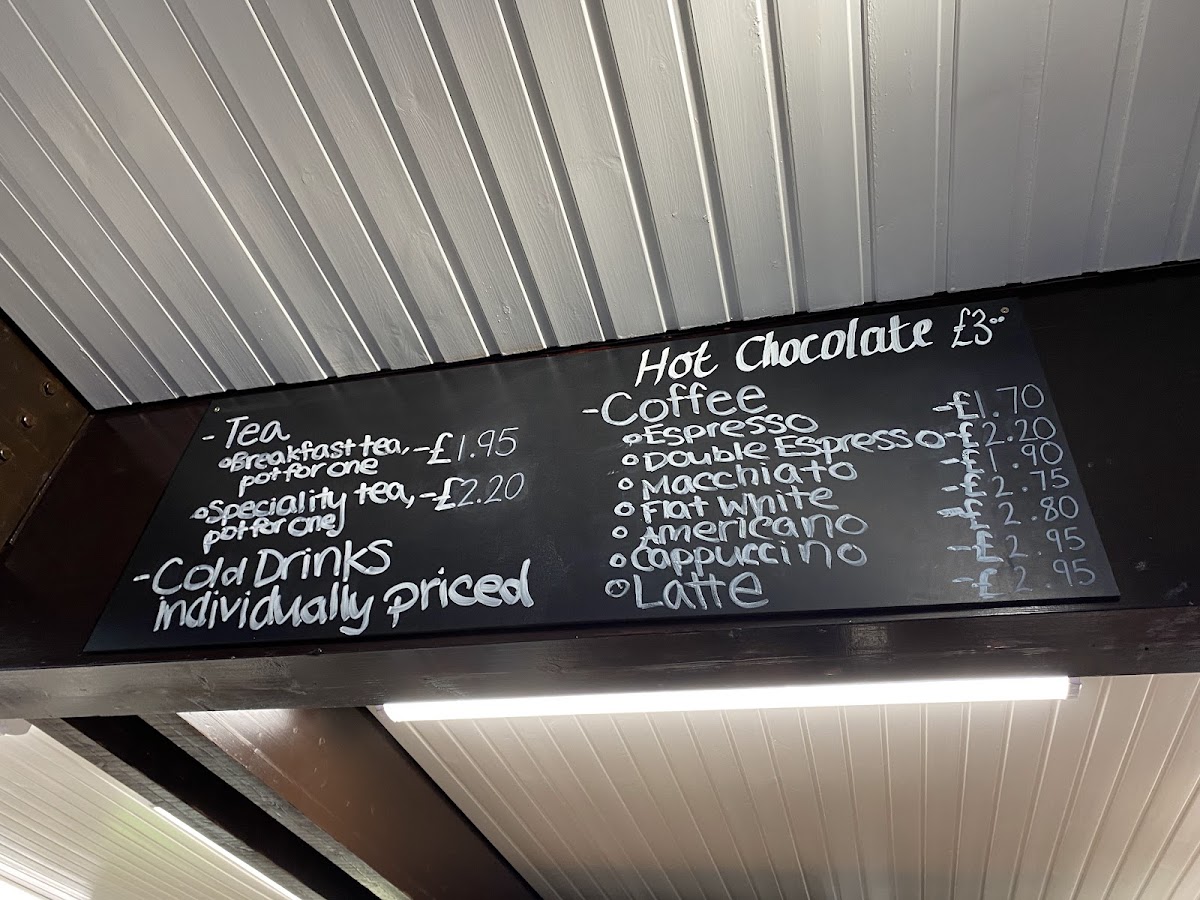 - Tea
Breakfast tea, - £1.95
pot for one
Speciality tea, - £2.20
pot for one
- Cold Drinks
individually priced
Hot Chocolate £3.00
- Coffee
Espresso - £1.70
Double Espresso - £2.20
Macchiato - £1.90
Flat White - £2.75
Americano - £2.80
Cappuccino - £2.95
Latte - £2.95